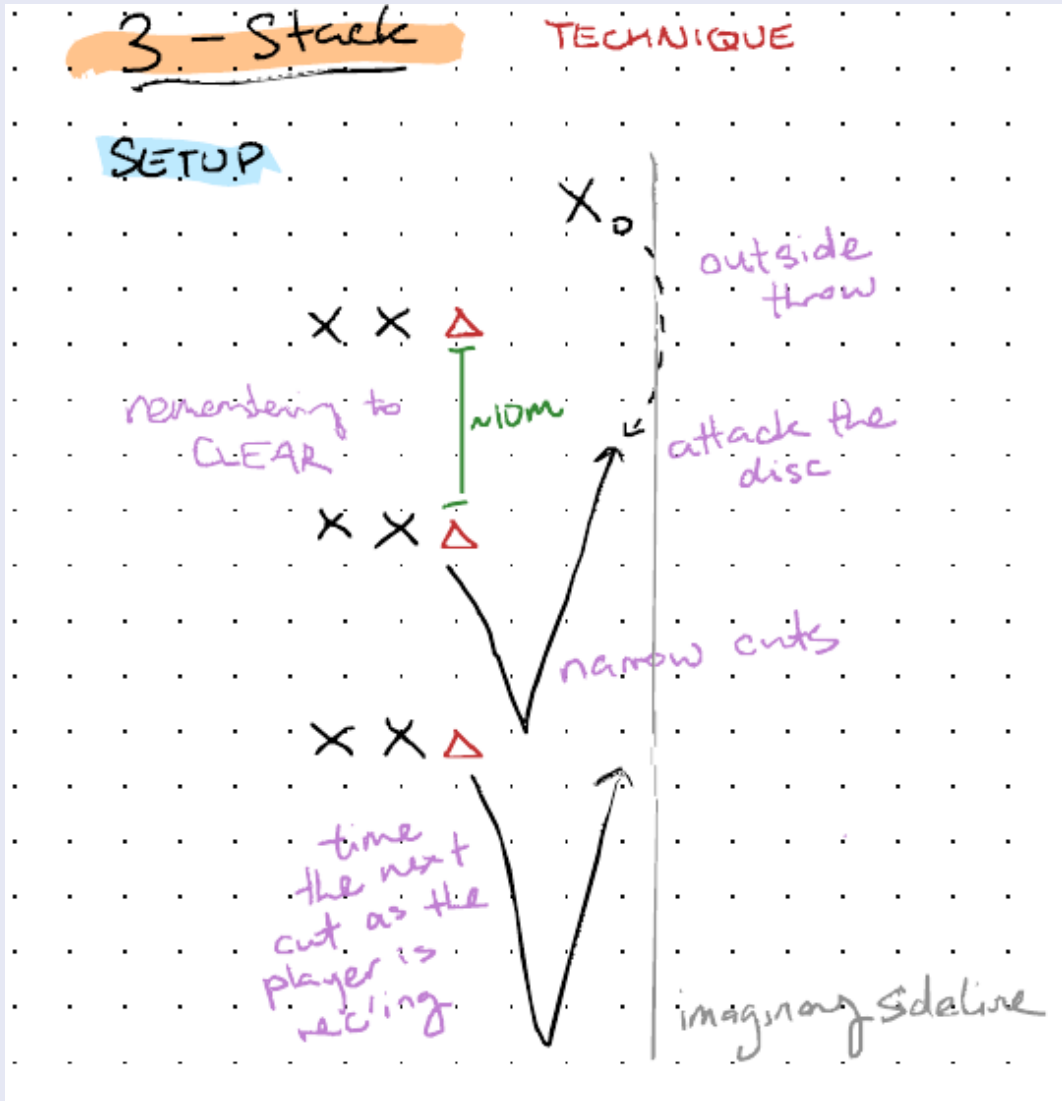 3-Stack
TECHNIQUE
SETUP
X
outside
throw
X X
~10m
remembering to
CLEAR
attack the
disc
X X
narrow cuts
X X
time
the next
cut as the
player is
rec'ing
imaginary sideline